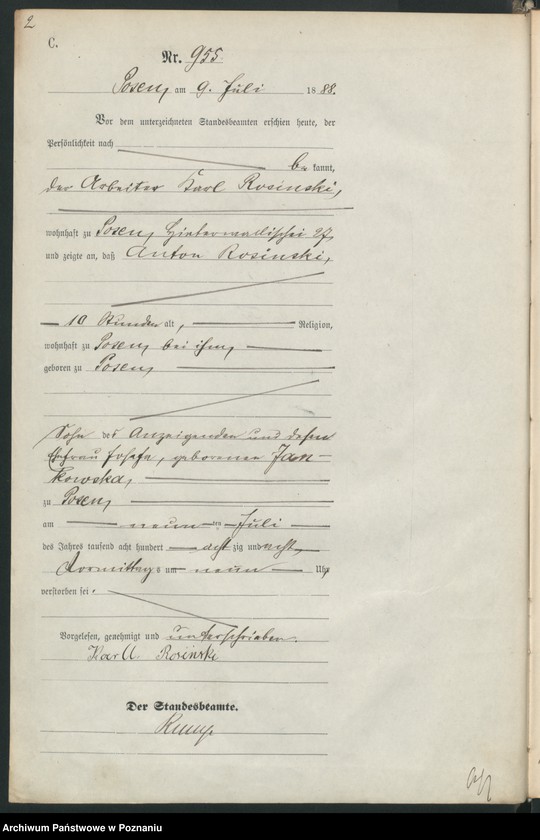 2
C.
Nr. 955.
Posen, am 9. Juli 1888.
Vor dem unterzeichneten Standesbeamten erschien heute, der
Persönlichkeit nach
bekannt,
der Arbeiter Karl Rosinski,
wohnhaft zu Posen, Hinterwallischei 27,
und zeigte an, daß Anton Rosinski,
10 Stunden alt, Religion,
wohnhaft zu Posen, bei ihm,
geboren zu Posen,
Sohn des Anzeigenden und dessen
Ehefrau Josefa, geborenen Jan-
kowska,
zu Posen,
am neunten Juli
des Jahres tausend acht hundert achtzig und acht,
Vormittags um neun Uhr
verstorben sei.
Vorgelesen, genehmigt und unterschrieben.
Karl Rosinski
Der Standesbeamte.
Archiwum Państwowe w Poznaniu